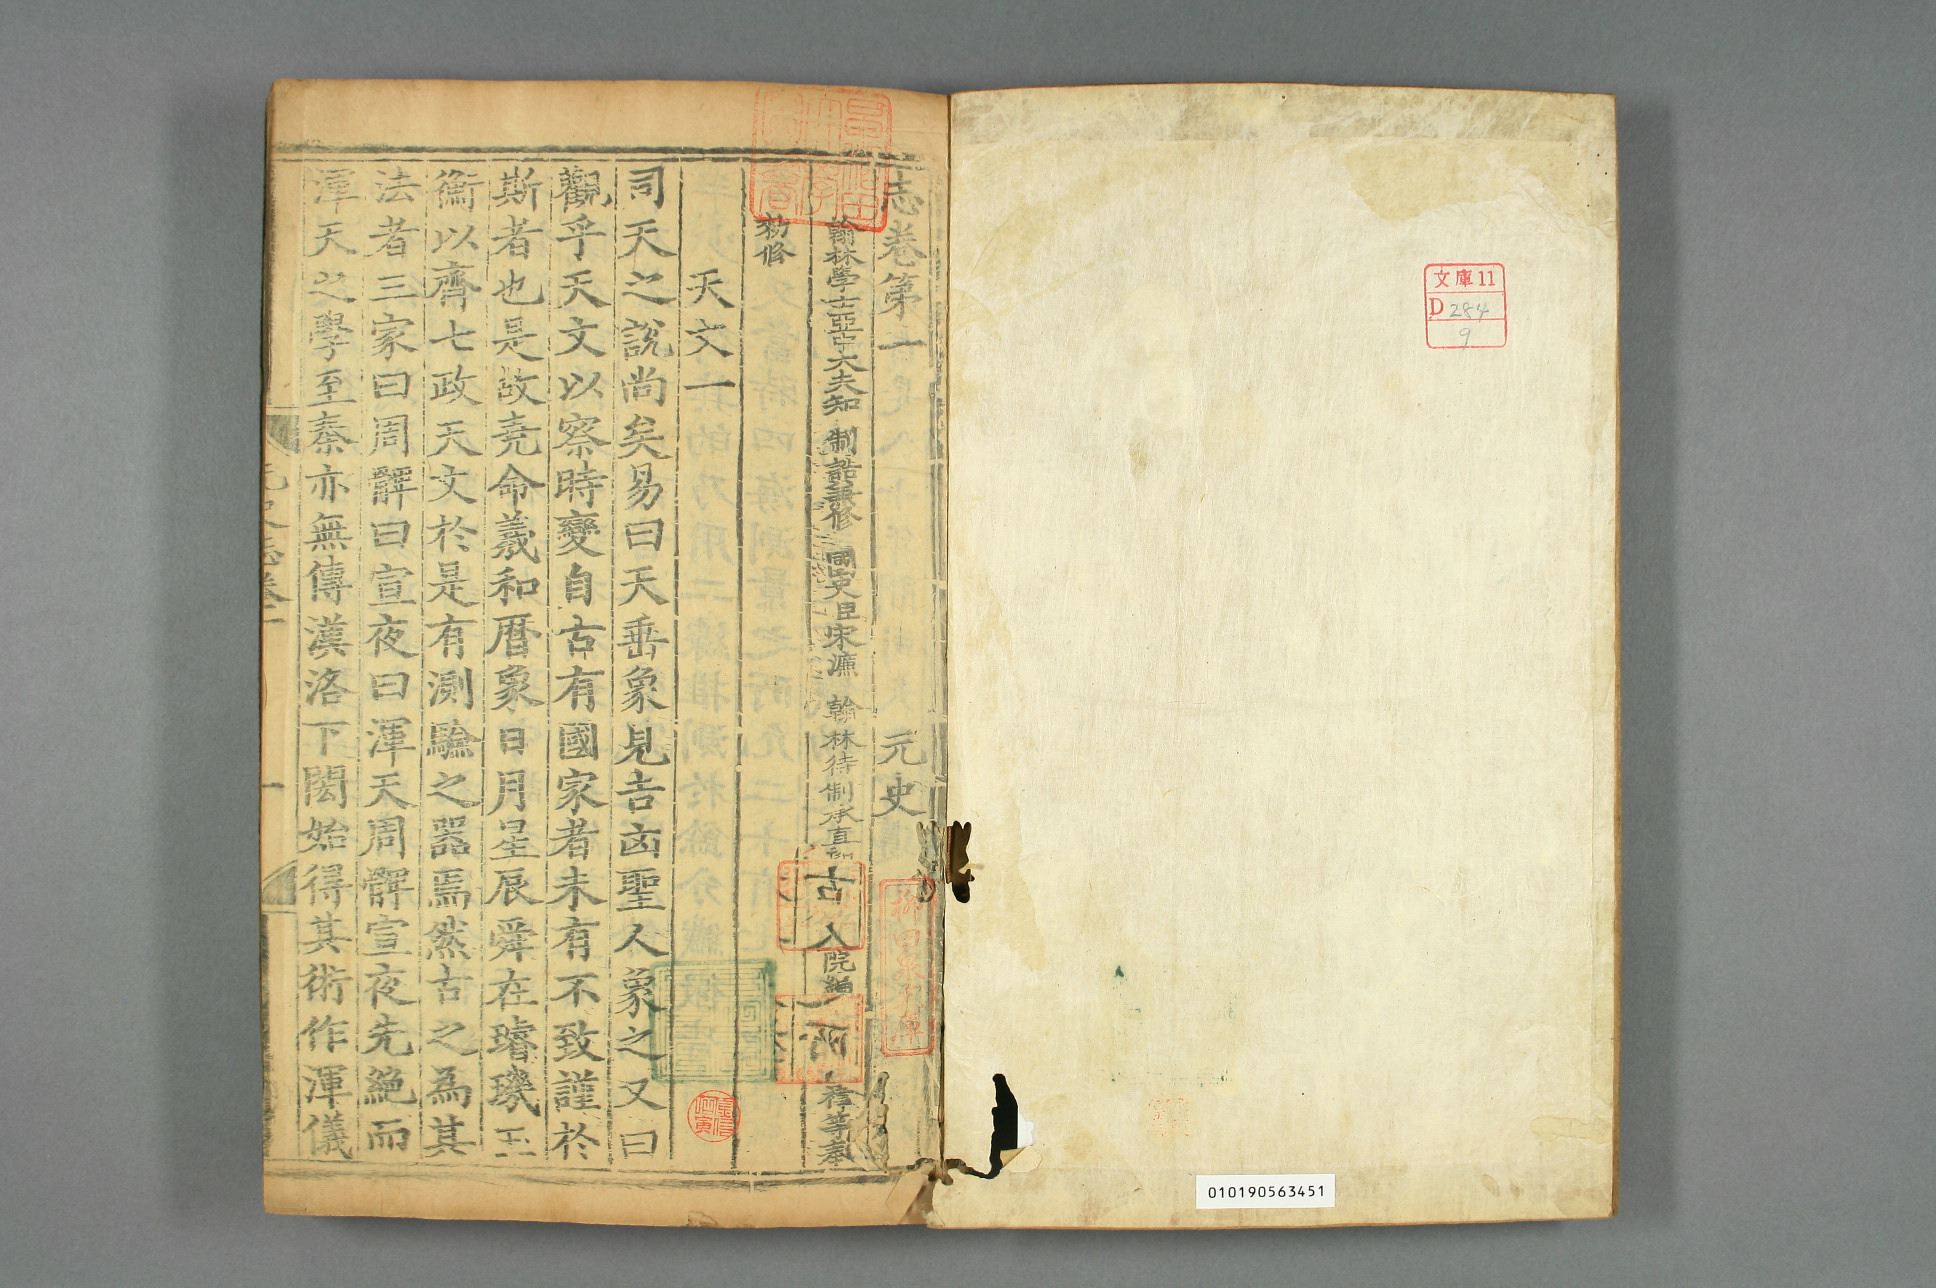 文庫11
D 284
9
010190563451
志卷第一 元史
翰林學士亞中大夫知 制誥兼修 國史臣宋濂 翰林待制承直 院編 等奉
勑修
天文一
司天之說尚矣易曰天垂象見吉凶聖人象之又曰
觀乎天文以察時變自古有國家者未有不致謹於
斯者也是故堯命羲和曆象日月星辰舜在璿璣玉
衡以齊七政天文於是有測驗之器焉然古之為其
法者三家曰周髀曰宣夜曰渾天周髀宣夜先絶而
渾天之學至秦亦無傳漢洛下閎始得其術作渾儀